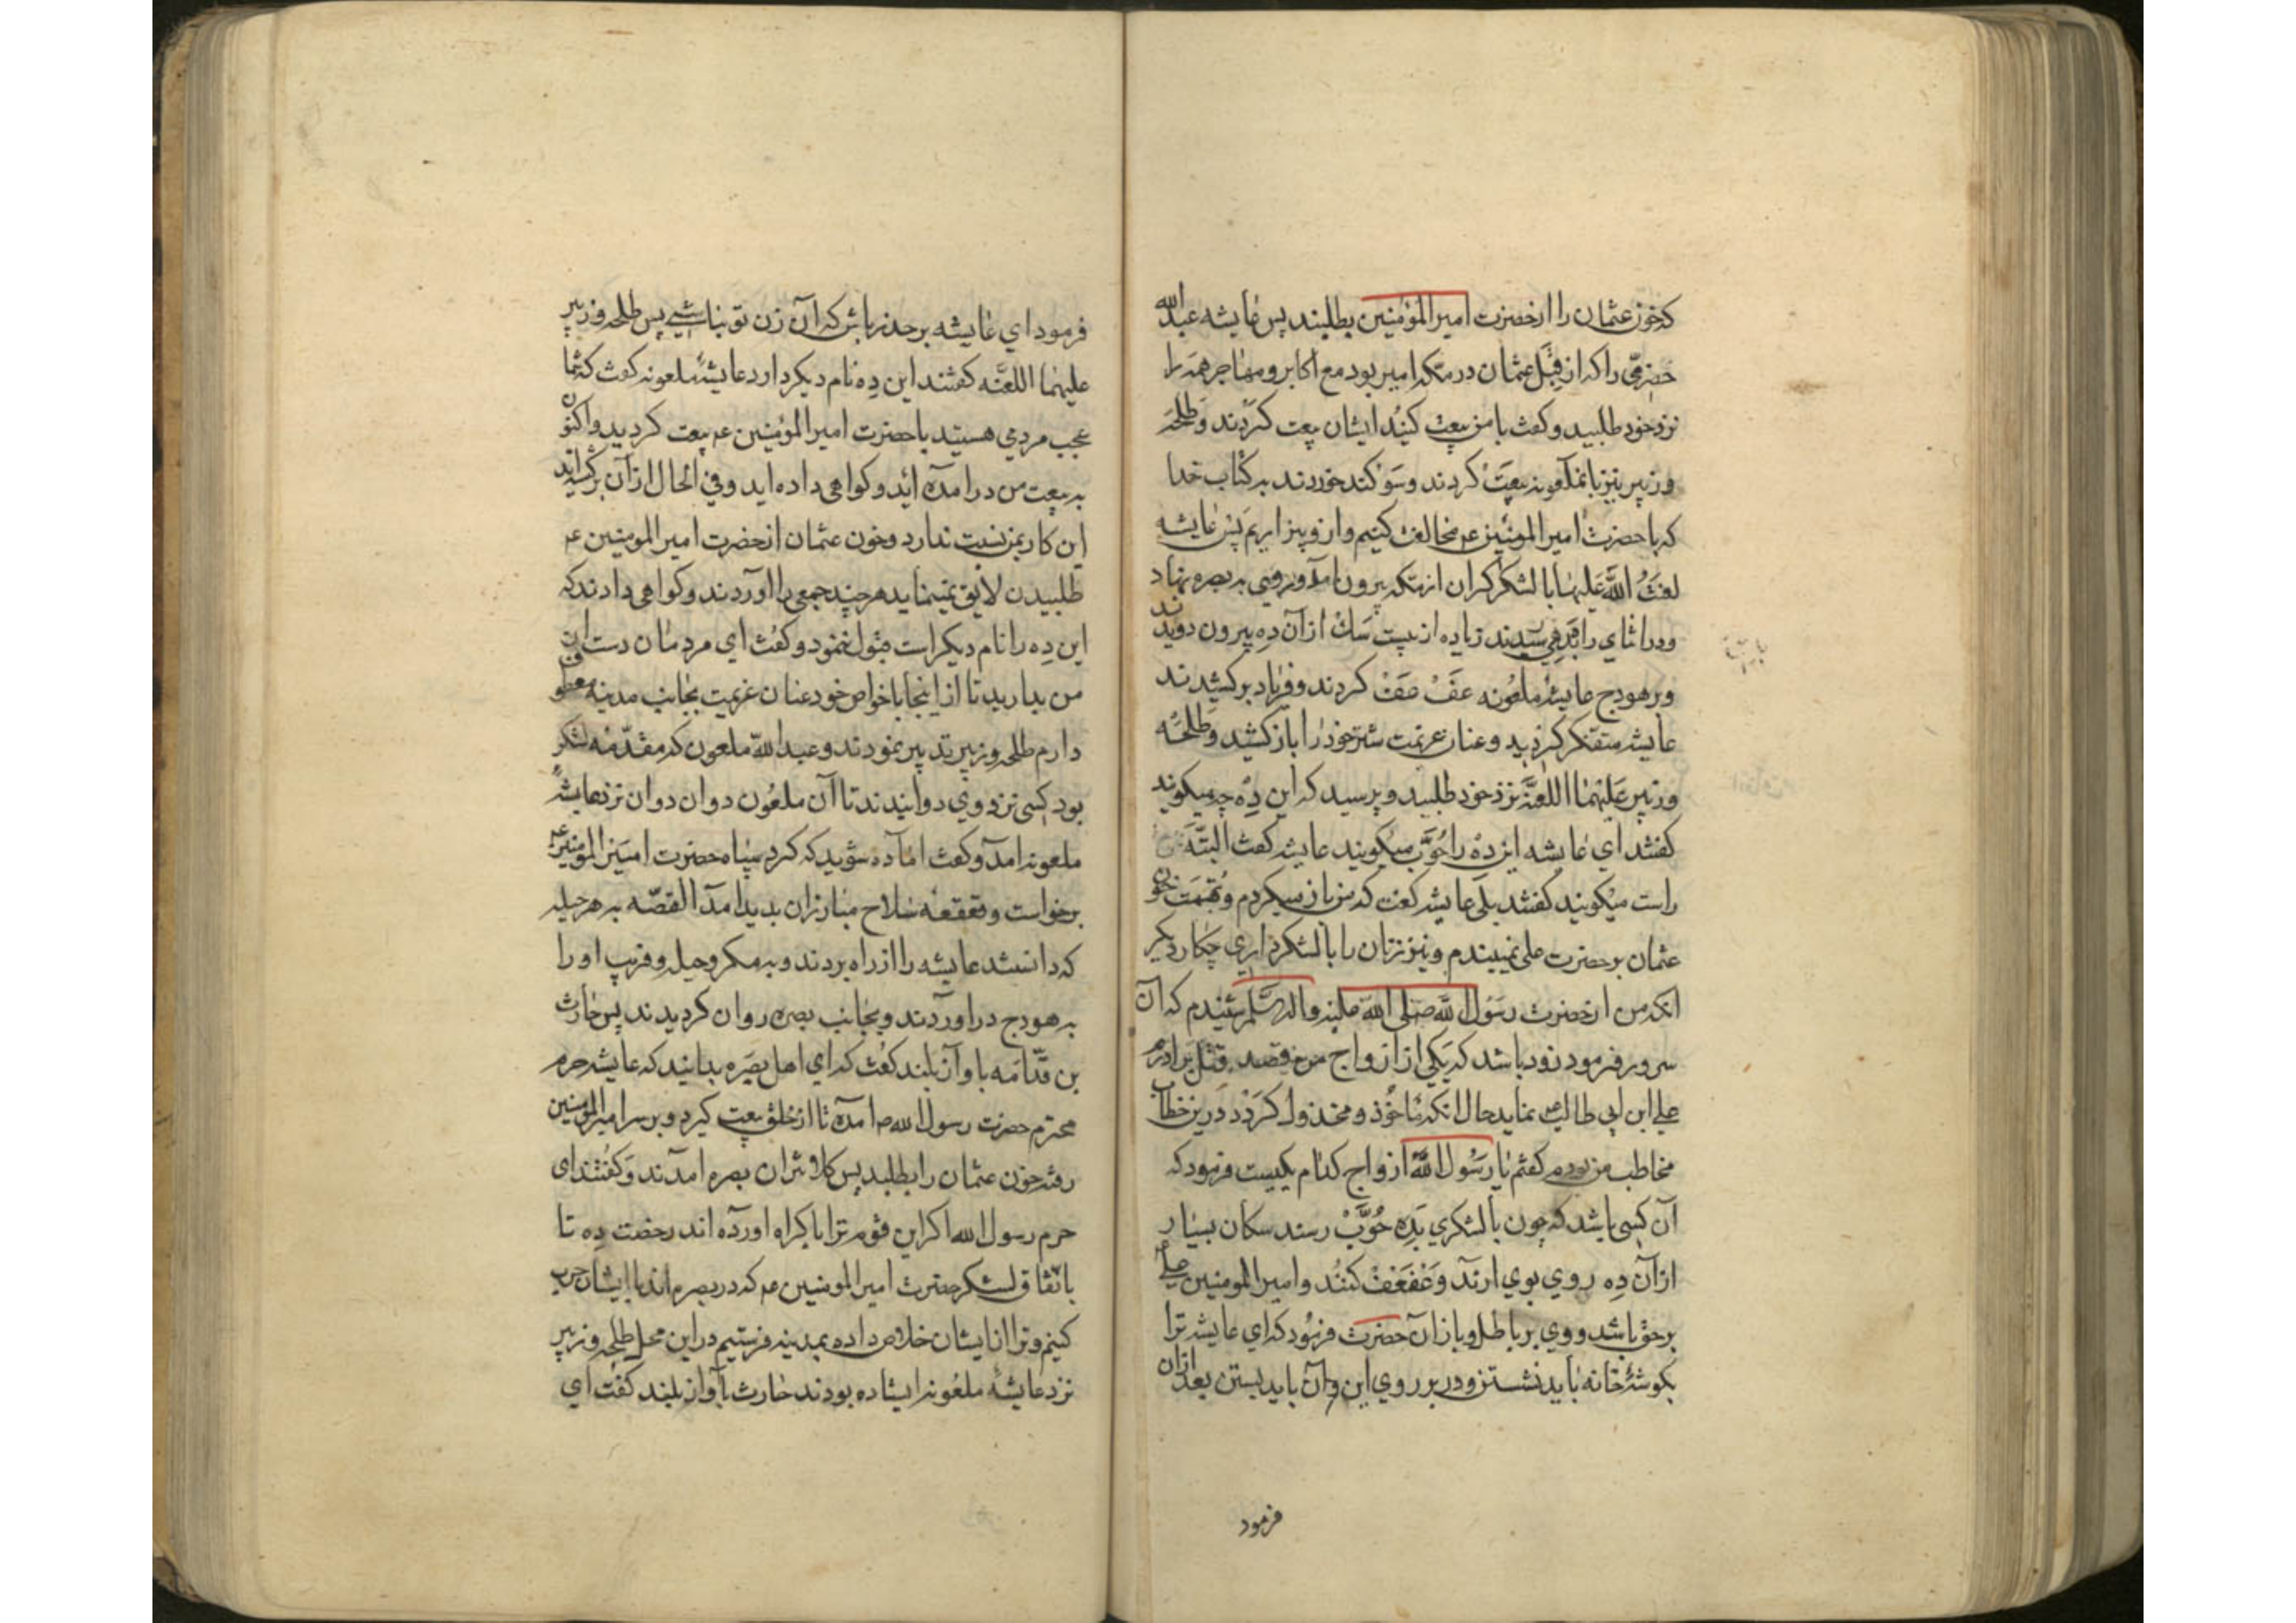 که خون عثمان را از حضرت امیر المؤمنین بطلبند پس عایشه عبد الله
حضرمی را که از قبل عثمان در مکه امیر بود مع اکابر و مهاجر همه را
نزد خود طلبید و کفت با من بیعت کنید ایشان بیعت کردند و طلحه
و زبیر نیز با نملعونه بیعت کردند و سوکند خوردند به کتاب خدا
که با حضرت امیر المومنین عم مخالفت کنیم و از و بیزاریم پس عایشه
لعنت الله علیها با لشکر کران از مکه بیرون آمد و روی به بصره نهاد
و در اثنای راه بدهی رسیدند زیاده از بیست سک از آن ده بیرون دویدند
و بر هودج عایشهٔ ملعونه عف عف کردند و فریاد بر کشیدند
عایشه متفکر کردید و عنان عزیمت شتر خود را باز کشید و طلحه
و زبیر علیهما اللعنه نزد خود طلبید و پرسید که این ده چه میکویند
کفتند ای عایشه این ده را حوب میکویند عایشه کفت البته
راست میکویند کفتند بلی عایشه کفت که من باز میکردم و تهمت خون
عثمان بر حضرت علی نمیبندم و نیز زنان را با لشکرداری چکار دیکر
انکه من از حضرت رسول الله صلی الله علیه واله وسلم شنیدم که آن
سرور فرمود زود باشد که یکی از ازواج من قصد قتل برادرم
علی ابن ابی طالب عم نماید حال انکه ماخوذ و مخذول کردد در ین خطاب
مخاطب من بودم کفتم یا رسول الله ازواج کدام یکیست فرمود که
آن کسی باشد که چون با لشکری بده حوب رسند سکان بسیار
از آن ده روی بوی ارند و عف عف کنند و امیر المومنین علی عم
بر حق باشد و وی بر باطل و باز ان حضرت فرمود که ای عایشه ترا
بکوشهٔ خانه باید نشستن و در بر روی این و آن باید بستن بعد ازان
فرمود
فرمود ای عایشه بر حذر باش که آن زن تو نباشی پس طلحه و زبیر
علیهما اللعنه کفتند این ده نام دیکر دارد عایشهٔ ملعونه کفت که شما
عجب مردمی هستید با حضرت امیر المؤمنین عم بیعت کردید و اکنون
به بیعت من در امده اید و کواهی داده اید و فی الحال از آن بر کشته اید
این کار بمن نسبت ندارد و خون عثمان از حضرت امیر المومنین عم
طلبیدن لایق نمینماید هر چند جمعی را اوردند و کواهی دادند که
این ده را نام دیکر است قبول ننمود و کفت ای مردمان دست از
من بدارید تا از اینجا با خواص خود عنان عزیمت بجانب مدینه معطوف
دارم طلحه و زبیر تدبیر نمودند و عبد الله ملعون که مقدمه لشکر
بود کسی نزد وی دوانیدند تا آن ملعون دوان دوان نزد عایشهٔ
ملعونه امد و کفت اماده شوید که کرد سپاه حضرت امیر المومنین عم
برخواست و قعقعه سلاح مبارزان بدید امد القصه به هر حیله
که دانستند عایشه را از راه بردند و بمکر و حیله و فریب او را
به هودج در اوردند و بجانب بصره روان کردیدند پس حارث
بن قدامه با واز بلند کفت که ای اهل بصره بدانید که عایشه حرم
محترم حضرت رسول الله ص امده تا از خلق بیعت کیرد و بر سر امیر المؤمنین
رفته خون عثمان را بطلبد پس کلانتران بصره امدند و کفتند ای
حرم رسول الله اکر این قوم ترا باکراه اورده اند رخصت ده تا
باتفاق لشکر حضرت امیر المومنین عم که در بصره اند با ایشان حرب
کنیم و ترا از ایشان خلاص داده بمدینه فرستیم در این محل طلحه و زبیر
نزد عایشهٔ ملعونه ایستاده بودند حارث بآواز بلند کفت ای